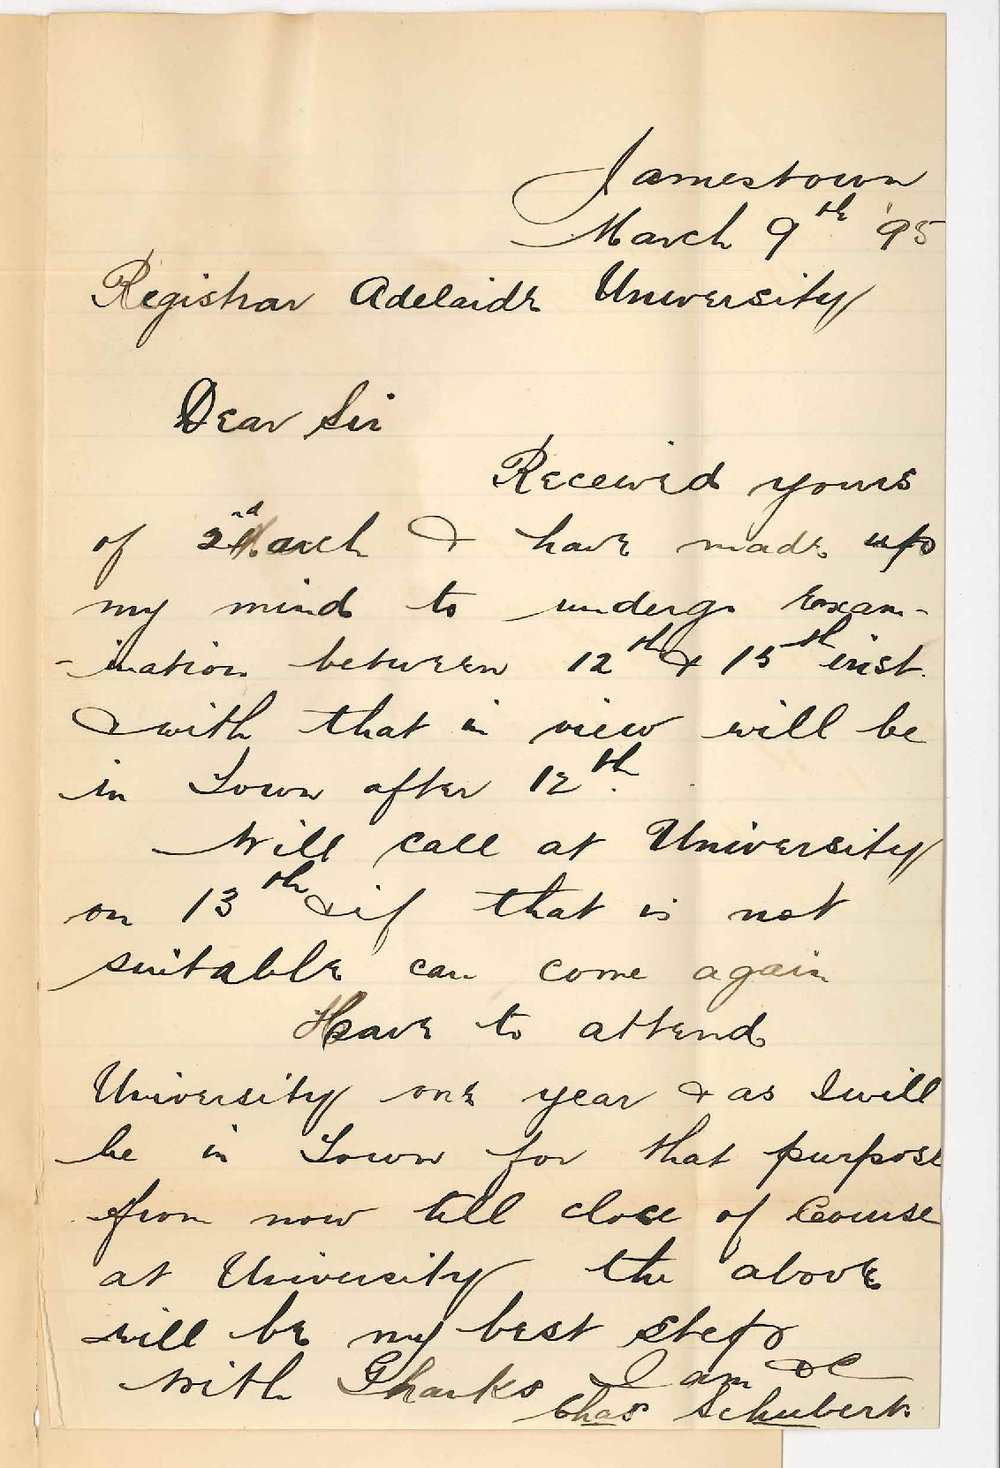 Jamestown
March 9th '95
Registrar Adelaide University
Dear Sir
Received yours
of 2nd March & have made up
my mind to undergo Exam-
-ination between 12th & 15th inst.
& with that in view will be
in Town after 12th.
Will call at University
on 13th & if that is not
suitable can come again
Have to attend
University one year & as I will
be in Town for that purpose
from now till close of Course
at University the above
will be my best step
With Thanks I am &c
Chas Schubert.